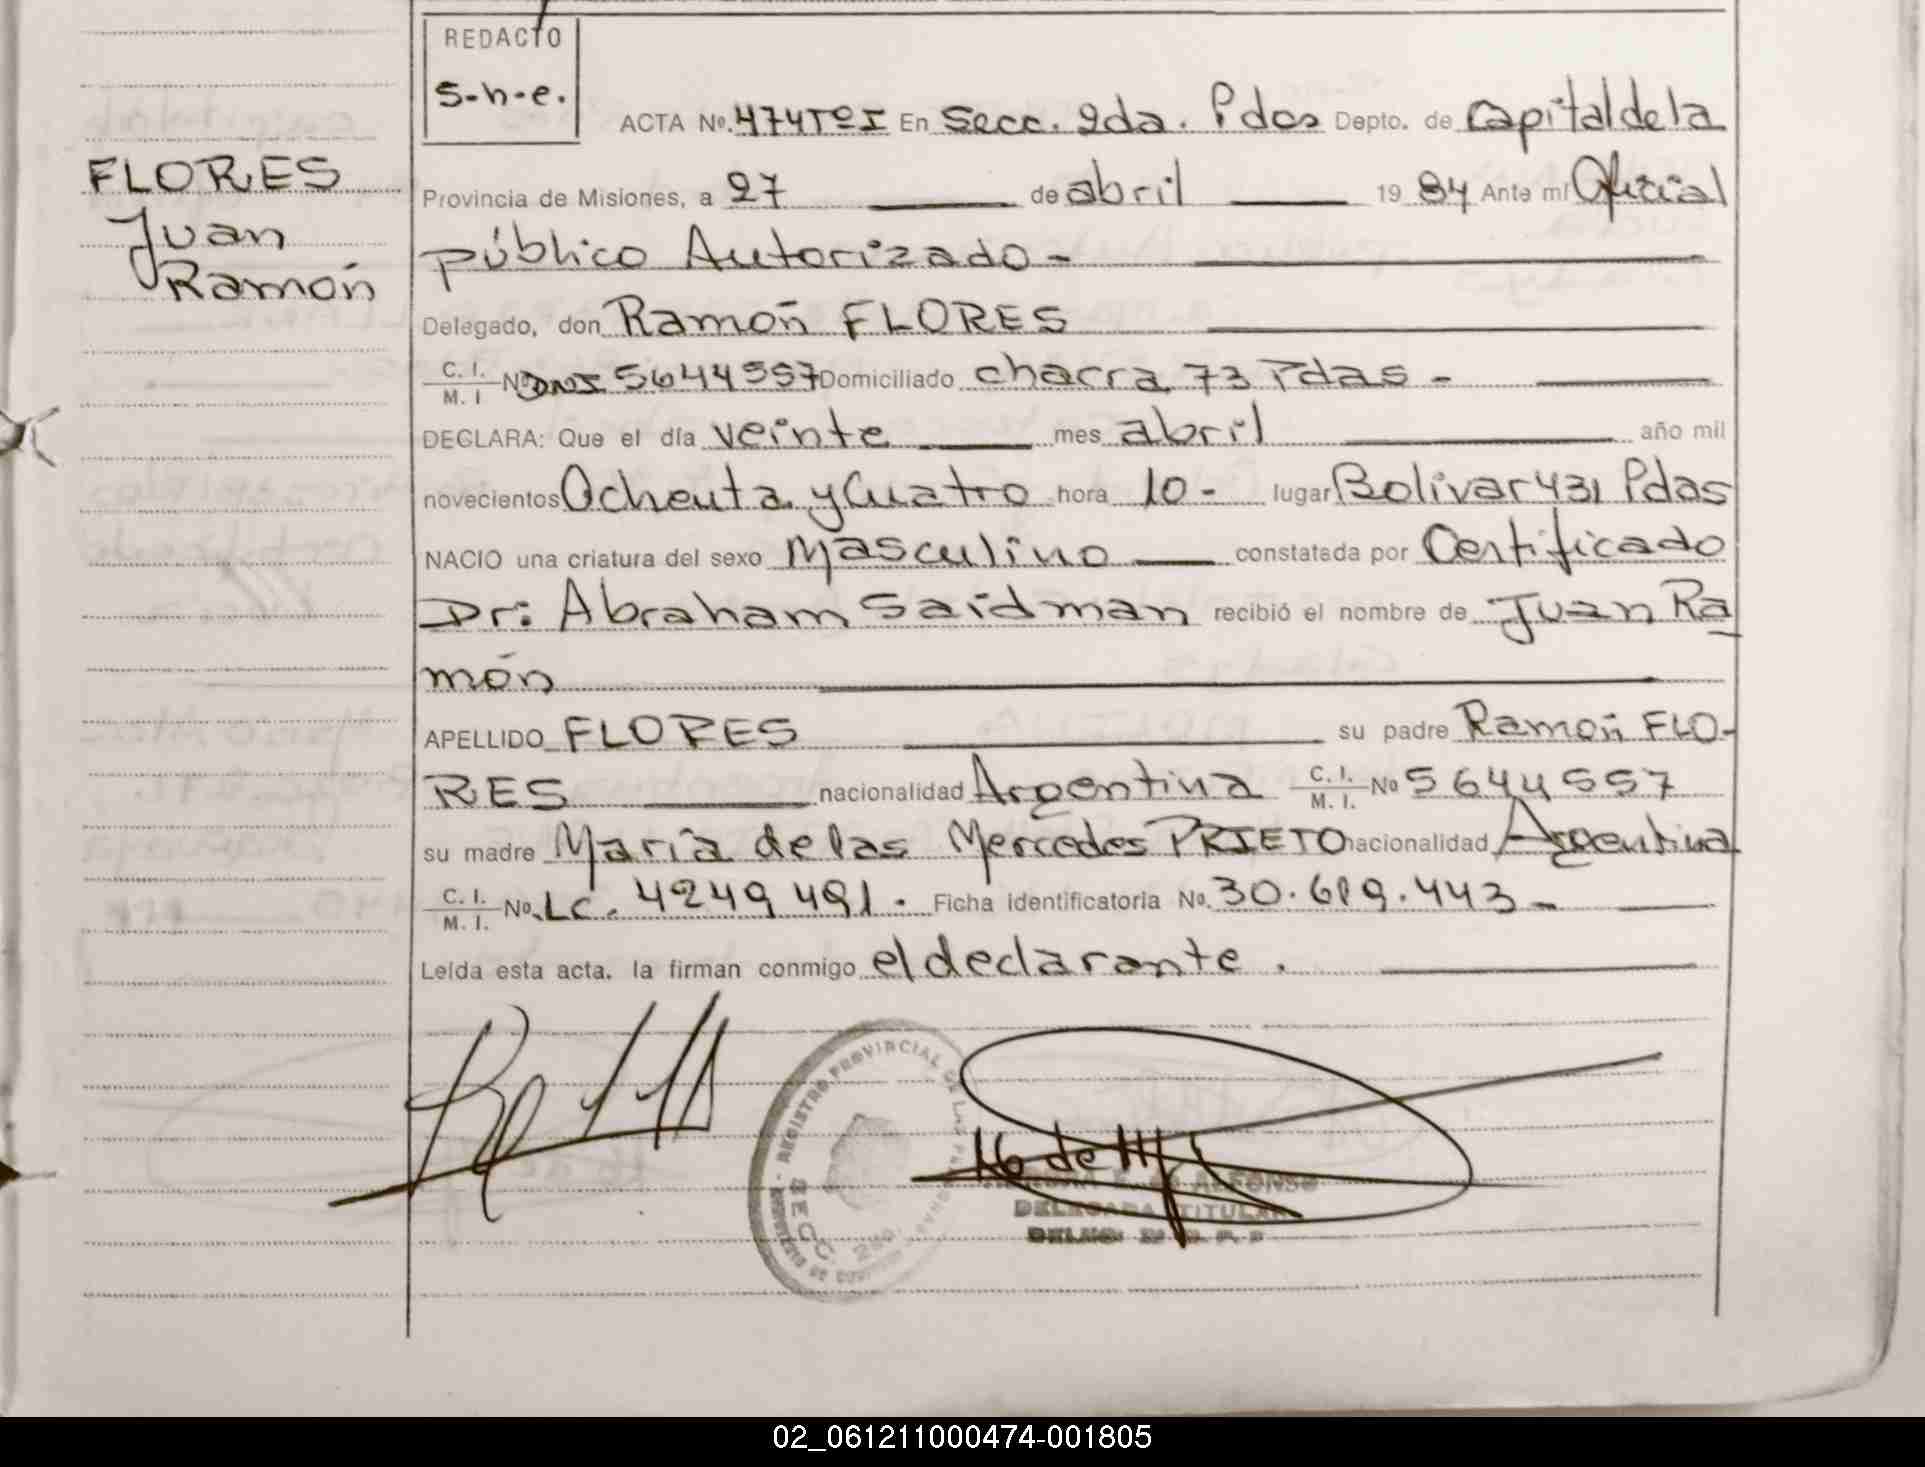 REDACTO
S-h-e.
ACTA Nº. 474 Tº I En Secc. 2da. Pdas Depto. de Capital de la
FLORES
Juan
Ramón
Provincia de Misiones, a 27 de abril 1984 Ante mí Oficial
público Autorizado -
Delegado, don Ramón FLORES
C. I.
M. I Nº DNI 5644557 Domiciliado chacra 73 Pdas -
DECLARA: Que el día veinte mes abril año mil
novecientos Ochenta y Cuatro hora 10 - lugar Bolivar 431 Pdas
NACIO una criatura del sexo Masculino constatada por Certificado
Dr: Abraham Saidman recibió el nombre de Juan Ra
món
APELLIDO FLORES su padre Ramón FLO-
RES nacionalidad Argentina C. I.
M. I. Nº 5644557
su madre María de las Mercedes PRIETO nacionalidad Argentina
C. I.
M. I. Nº. Lc. 4249491. Ficha identificatoria Nº. 30.689.443 -
Leída esta acta, la firman conmigo el declarante.
REGISTRO PROVINCIAL DE LAS PERSONAS
SECC. 2da.
ALFONSO
DELEGADA TITULAR
02_061211000474-001805